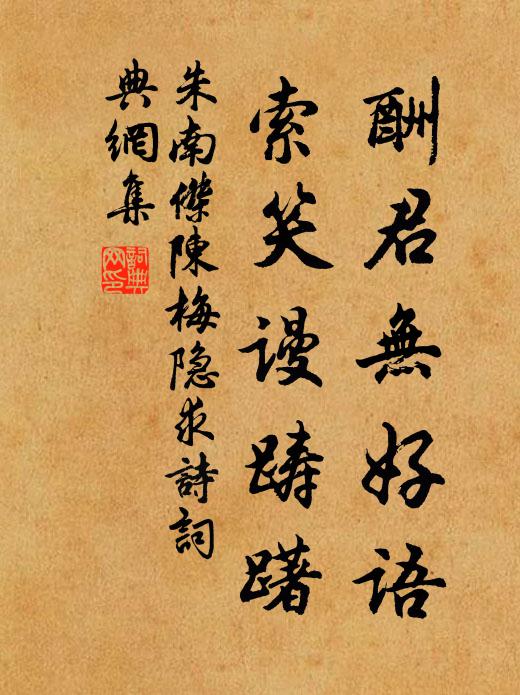 酬君無好語
索笑謾踌躇
朱南傑陳梅隐求詩詞
典網集
詞典
网印